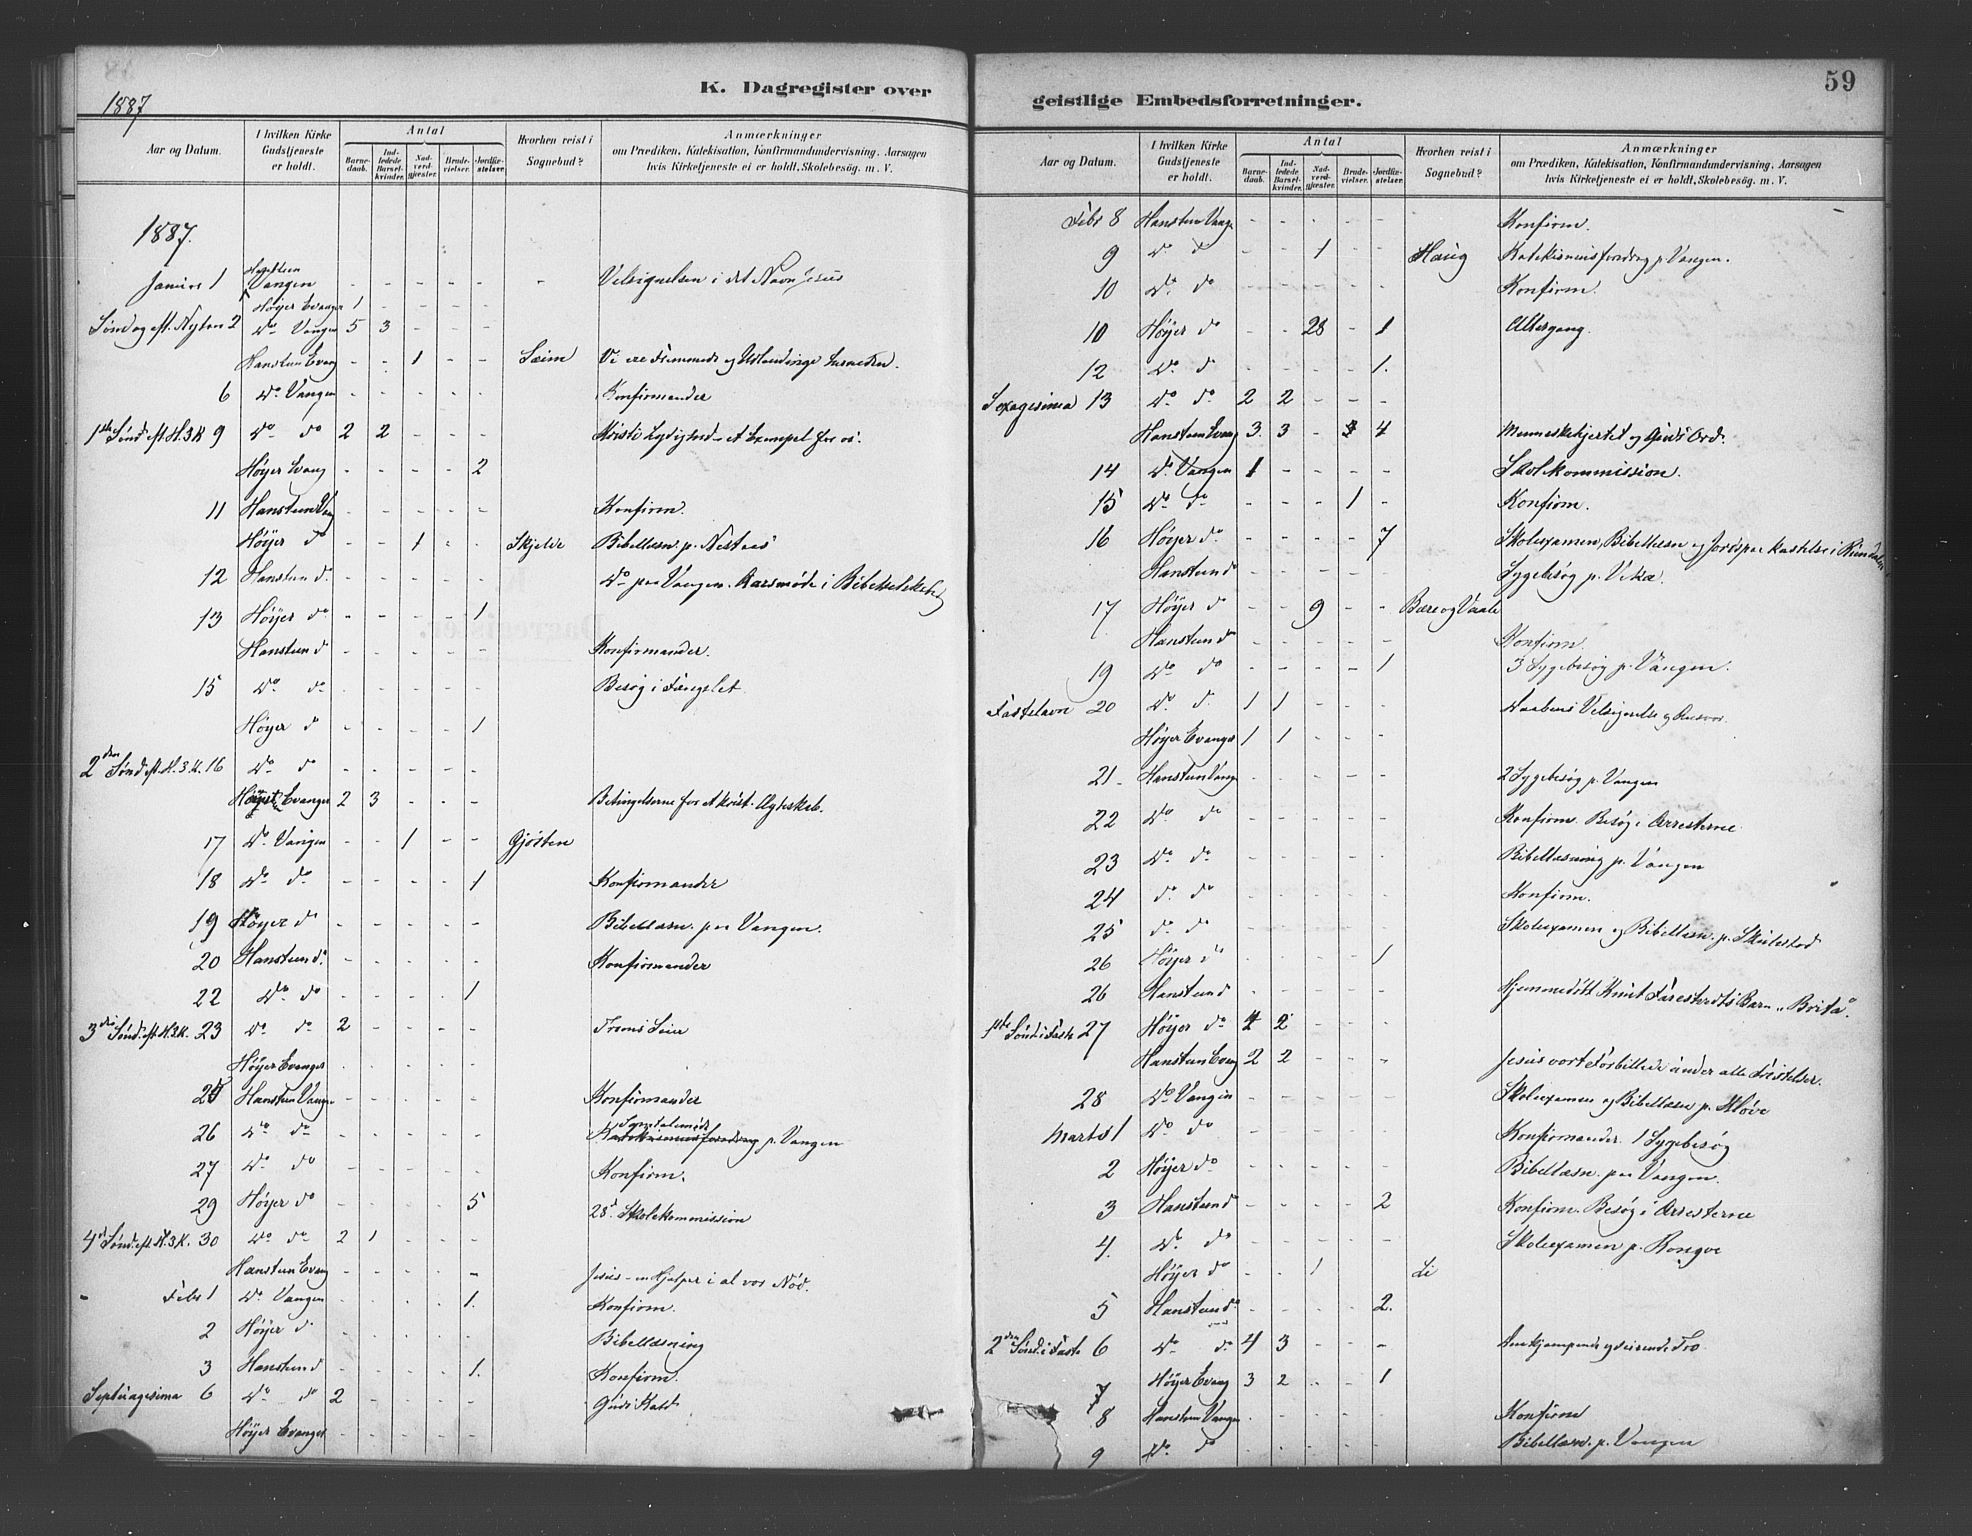 1887
K. Dagregister over
Aar og Datum. I hvilken Kirke Gudstjeneste er holdt. Antal Barnedaab. Indledede Barselkvinder. Nadverdgjester. Brudevielser. Jordfæstelser. Hvorhen reist i Sognebud? Anmærkninger om Prædiken, Katekisation, Konfirmandundervisning, Aarsagen hvis Kirketjeneste ei er holdt, Skolebesøg. m. V.
1887.
Januar 1 Hansteen Vangen - - - - - - Velsignelsen i det Navn Jesus
Høyer Evanger 1 - - - -
Søndag eft. Nytaar 2 Do Vangen 5 3 - - -
Hansteen Evang - - 1 - - Sæim Vi ere Fremmede og Udlændinge herneden.
6 Do Vangen - - - - - Konfirmander
1ste Sønd. eft. H.3.K 9 Do do 2 2 - - - Kristi Lydighed - et Exempel for os.
Høyer Evang - - - - 2
11 Hansteen Vang - - - - - Konfirm.
Høyer do - - 1 - - Skjelde Bibellæsn. p. Nestaas
12 Hansteen d. - - - - - Do paa Vangen. Aarsmøde i Bibelselskabet
13 Høyer do - - - - 1
Hansteen d - - - - - Konfirmander.
15 Do do - - - - - Besøg i Fængslet
Høyer do - - - - 1
2den Sønd. eft. H.3.K. 16 Do do - - - - -
Evanger 2 3 - - - Betingelserne for et krist. Ægteskab.
17 Do Vangen - - 1 - - Gjøsten
18 Do do - - - - 1 Konfirmander
19 Høyer do - - - - - Bibellæsn. paa Vangen.
20 Hansteen do - - - - - Konfirmander
22 Do do - - - - 1
3die Sønd. eft. H.3.K. 23 Do do 2 - - - - Troens Seier
Høyer Evanger - - - - -
25 Hansteen Vangen - - - - - Konfirmander
26 Do do - - - - - Samtalemøde p. Vangen
27 Do do - - - - - Konfirm.
29 Høyer do - - - - 5 28d. Skolekommission
4d Sønd. eft. H.3.K. 30 Do do 2 1 - - -
Hansteen Evang - - - - - Jesus - en Hjælper i al vor Nød.
Febr 1 Do Vangen - - - - 1. Konfirm.
2 Høyer d - - - - - Bibellæsning
3 Hansteen d - - - - 1. Konfirm.
Septuagesima 6 Do do 2 - - - - Guds Kald
Høyer Evanger - - - - -
59
geistlige Embedsforretninger.
Aar og Datum. I hvilken Kirke Gudstjeneste er holdt. Antal Barnedaab. Indledede Barselkvinder. Nadverdgjester. Brudevielser. Jordfæstelser. Hvorhen reist i Sognebud? Anmærkninger om Prædiken, Katekisation, Konfirmandundervisning, Aarsagen hvis Kirketjeneste ei er holdt, Skolebesøg. m. V.
Febr 8 Hansteen Vange - - - - - Konfirm.
9 Do do - - 1 - - Haug Katekismusforedrag p. Vangen.
10 Do do - - - - - Konfirm.
10 Høyer do - - 28 - 1 Altergang.
12 Do d - - - - 1.
Sexagesima 13 Do do 2 2 - - -
Hansteen Evang 3. 3 - 3 4 Menneskehjertet og Guds Ord.
14 Do Vangen 1 - - - - Skolekommission.
15 Do do - - - 1 - Konfirm.
16 Høyer do - - - - 7 Skoleexamen, Bibellæsn og Jordspaakastelse i
Hansteen d - - - - - Sygebesøg p.
17 Høyer d - - 9 - - Bære og Vaale
Hansteen do - - - - - Konfirm.
19 Do do - - - - 1 3 Sygebesøg p. Vangen.
Fastelavn 20 Do d. 1 1 - - - Daabens Velsignelse og Ansvar.
Høyer Evanger 1 1 - - -
21 Hansteen Vange - - - - - 2 Sygebesøg p. Vangen
22 Do do - - - - - Konfirm. Besøg i Arresterne
23 Do do - - - - - Bibellæsning p. Vangen
24 do do - - - - - Konfirm.
25 do do - - - - - Skoleexamen og Bibellæsn. p. Skulestad
26 Høyer do - - - - 1
26 Hansteen d - - - - - Hjemmedøbt Knut Farestvedts Barn "Brita".
1ste Sønd. i Faste 27 Høyer do 2 2 - - -
Hansteen Evang 2 2 - - - Jesus vort Forbillede under alle Fristelser.
28 Do Vangen - - - - - Skoleexamen og Bibellæsn p. Kløve
Marts 1 Do do - - - - - Konfirmander. 1 Sygebesøg
2 Høyer do - - - - - Bibellæsn. paa Vangen.
3 Hansteen do - - - - 2 Konfirm. Besøg i Arresterne
4. Do do - - - - - Skoleexamen p. Rongve
Høyer do - - 1 - - Li
5 Hansteen do - - - - 2.
2den Sønd. i Faste 6 Do do 4 3 - - - Den kjæmpende og seirende Tro
7 Høyer Evang 3 2 - - 1
8 Hansteen Vangen - - - - - Konfirm
9 Do do - - - - - Bibellæsn. p. Vangen